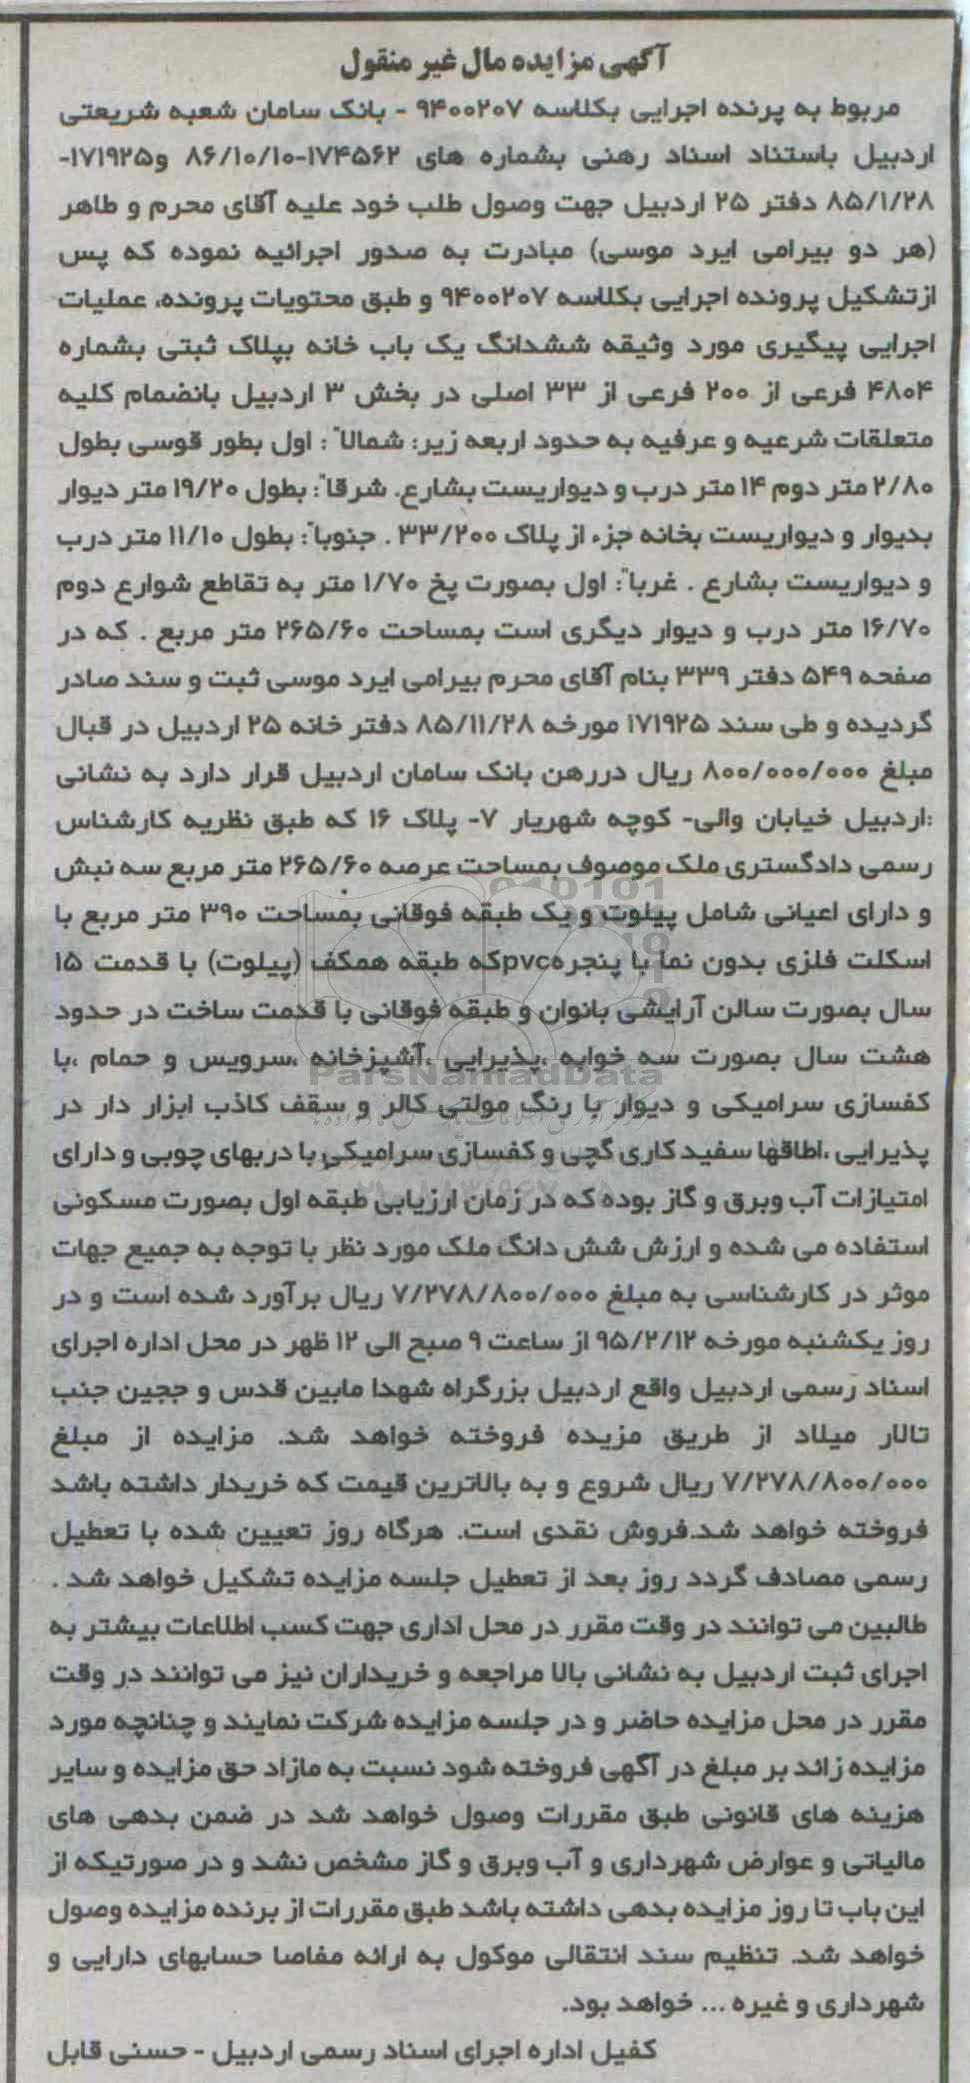 آگهی مزایده مال غیر منقول
مربوط به پرنده اجرایی بکلاسه ۹۴۰۰۲۰۷ - بانک سامان شعبه شریعتی
اردبیل باستناد اسناد رهنی بشماره های ۱۷۴۵۶۲-۸۶/۱۰/۱۰ و۱۷۱۹۲۵-
۸۵/۱/۲۸ دفتر ۲۵ اردبیل جهت وصول طلب خود علیه آقای محرم و طاهر
(هر دو بیرامی ایرد موسی) مبادرت به صدور اجرائیه نموده که پس
ازتشکیل پرونده اجرایی بکلاسه ۹۴۰۰۲۰۷ و طبق محتویات پرونده، عملیات
اجرایی پیگیری مورد وثیقه ششدانگ یک باب خانه بپلاک ثبتی بشماره
۴۸۰۴ فرعی از ۲۰۰ فرعی از ۳۳ اصلی در بخش ۳ اردبیل بانضمام کلیه
متعلقات شرعیه و عرفیه به حدود اربعه زیر: شمالاً : اول بطور قوسی بطول
۲/۸۰ متر دوم ۱۴ متر درب و دیواریست بشارع. شرقاً: بطول ۱۹/۲۰ متر دیوار
بدیوار و دیواریست بخانه جزء از پلاک ۳۳/۲۰۰ . جنوباً: بطول ۱۱/۱۰ متر درب
و دیواریست بشارع . غرباً: اول بصورت پخ ۱/۷۰ متر به تقاطع شوارع دوم
۱۶/۷۰ متر درب و دیوار دیگری است بمساحت ۲۶۵/۶۰ متر مربع . که در
صفحه ۵۴۹ دفتر ۳۳۹ بنام آقای محرم بیرامی ایرد موسی ثبت و سند صادر
گردیده و طی سند ۱۷۱۹۲۵ مورخه ۸۵/۱۱/۲۸ دفتر خانه ۲۵ اردبیل در قبال
مبلغ ۸۰۰/۰۰۰/۰۰۰ ریال دررهن بانک سامان اردبیل قرار دارد به نشانی
:اردبیل خیابان والی- کوچه شهریار ۷- پلاک ۱۶ که طبق نظریه کارشناس
رسمی دادگستری ملک موصوف بمساحت عرصه ۲۶۵/۶۰ متر مربع سه نبش
و دارای اعیانی شامل پیلوت و یک طبقه فوقانی بمساحت ۳۹۰ متر مربع با
اسکلت فلزی بدون نما با پنجرهpvcکه طبقه همکف (پیلوت) با قدمت ۱۵
سال بصورت سالن آرایشی بانوان و طبقه فوقانی با قدمت ساخت در حدود
هشت سال بصورت سه خوابه ،پذیرایی ،آشپزخانه ،سرویس و حمام ،با
ParsNamadData
کفسازی سرامیکی و دیوار با رنگ مولتی کالر و سقف کاذب ابزار دار در
پذیرایی ،اطاقها سفید کاری گچی و کفسازی سرامیکی با دربهای چوبی و دارای
امتیازات آب وبرق و گاز بوده که در زمان ارزیابی طبقه اول بصورت مسکونی
استفاده می شده و ارزش شش دانگ ملک مورد نظر با توجه به جمیع جهات
موثر در کارشناسی به مبلغ ۷/۲۷۸/۸۰۰/۰۰۰ ریال برآورد شده است و در
روز یکشنبه مورخه ۹۵/۲/۱۲ از ساعت ۹ صبح الی ۱۲ ظهر در محل اداره اجرای
اسناد رسمی اردبیل واقع اردبیل بزرگراه شهدا مابین قدس و ججین جنب
تالار میلاد از طریق مزیده فروخته خواهد شد. مزایده از مبلغ
۷/۲۷۸/۸۰۰/۰۰۰ ریال شروع و به بالاترین قیمت که خریدار داشته باشد
فروخته خواهد شد.فروش نقدی است. هرگاه روز تعیین شده با تعطیل
رسمی مصادف گردد روز بعد از تعطیل جلسه مزایده تشکیل خواهد شد .
طالبین می توانند در وقت مقرر در محل اداری جهت کسب اطلاعات بیشتر به
اجرای ثبت اردبیل به نشانی بالا مراجعه و خریداران نیز می توانند در وقت
مقرر در محل مزایده حاضر و در جلسه مزایده شرکت نمایند و چنانچه مورد
مزایده زائد بر مبلغ در آگهی فروخته شود نسبت به مازاد حق مزایده و سایر
هزینه های قانونی طبق مقررات وصول خواهد شد در ضمن بدهی های
مالیاتی و عوارض شهرداری و آب وبرق و گاز مشخص نشد و در صورتیکه از
این باب تا روز مزایده بدهی داشته باشد طبق مقررات از برنده مزایده وصول
خواهد شد. تنظیم سند انتقالی موکول به ارائه مفاصا حسابهای دارایی و
شهرداری و غیره ... خواهد بود.
کفیل اداره اجرای اسناد رسمی اردبیل - حسنی قابل